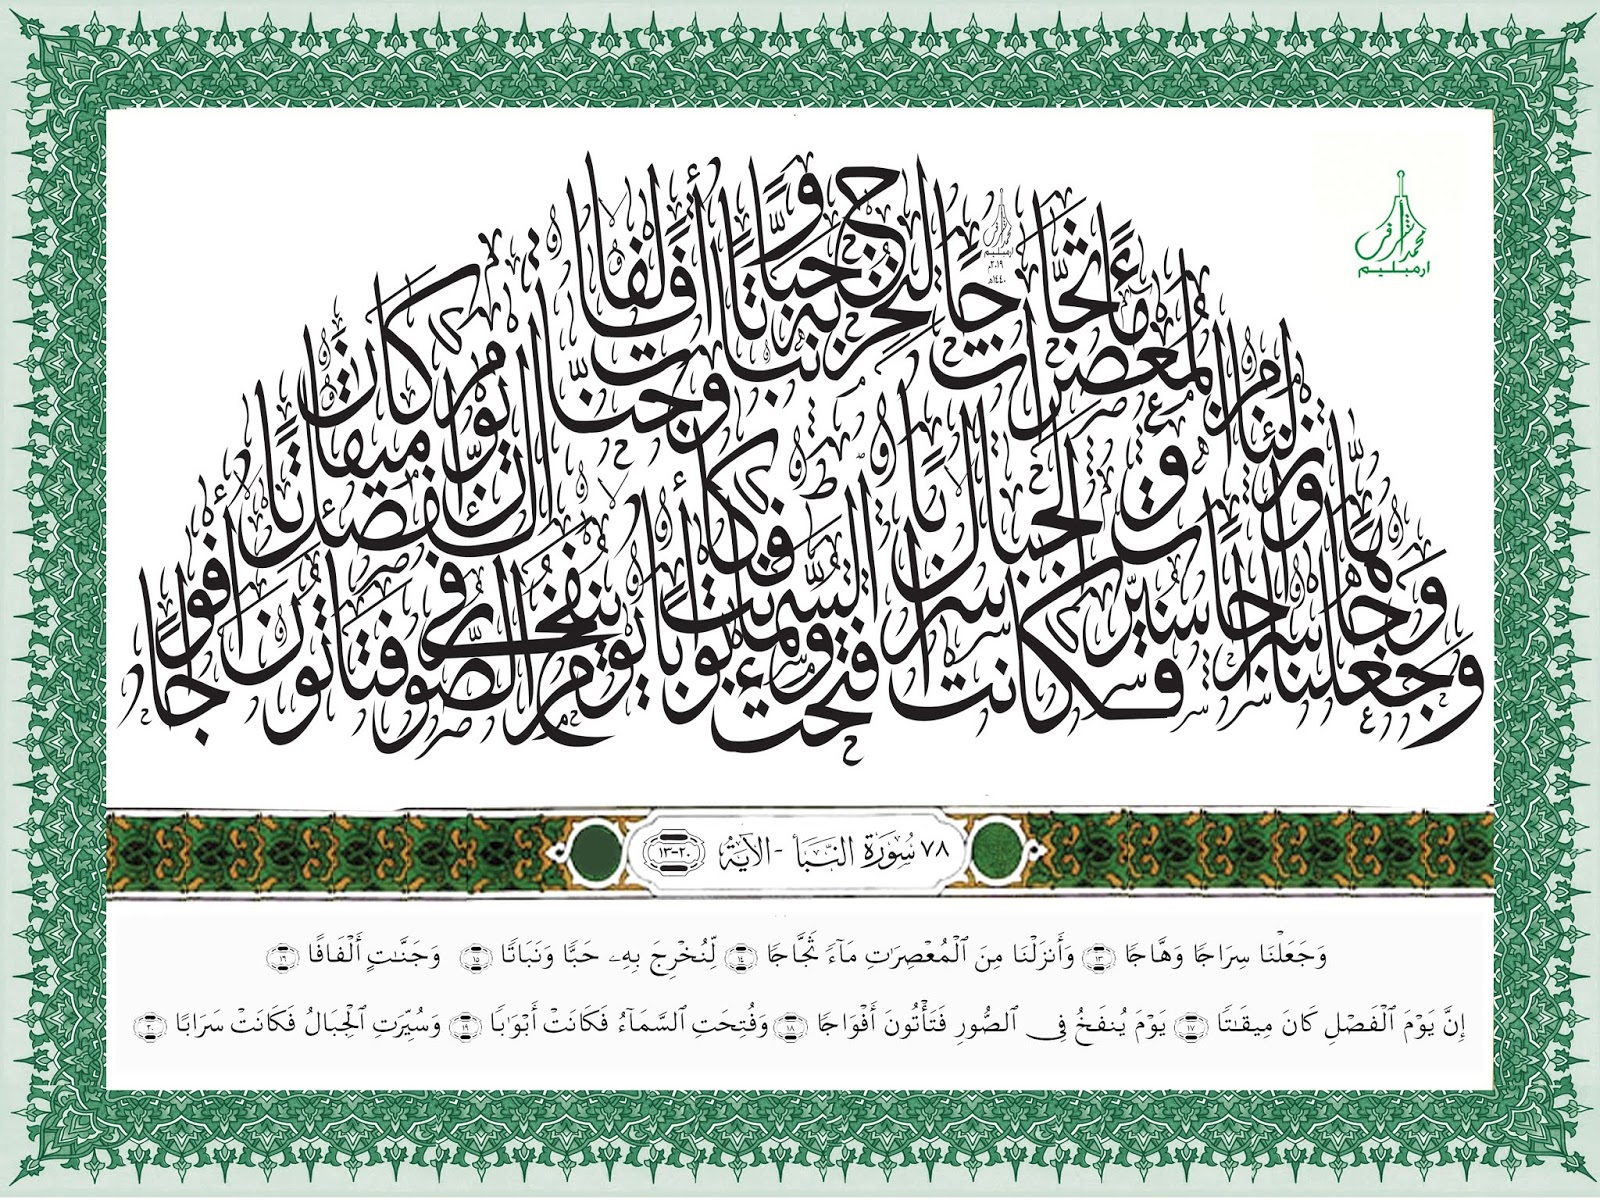 وَجَعَلْنَا سِرَاجًا وَهَّاجًا وَأَنزَلْنَا مِنَ ٱلْمُعْصِرَٰتِ مَآءً ثَجَّاجًا لِّنُخْرِجَ بِهِۦ حَبًّا وَنَبَاتًا وَجَنَّٰتٍ أَلْفَافًا
إِنَّ يَوْمَ ٱلْفَصْلِ كَانَ مِيقَٰتًا يَوْمَ يُنفَخُ فِى ٱلصُّورِ فَتَأْتُونَ أَفْوَاجًا وَفُتِحَتِ ٱلسَّمَآءُ فَكَانَتْ أَبْوَٰبًا وَسُيِّرَتِ ٱلْجِبَالُ فَكَانَتْ سَرَابًا
محمد اشرف
ارمبليم
٢٠١٩م
١٤٤٠هـ
محمد اشرف
ارمبليم
٧٨ سُورَة النَّبَأ - الآيَة ٢٠-١٣
وَجَعَلْنَا سِرَاجًا وَهَّاجًا ١٣ وَأَنزَلْنَا مِنَ ٱلْمُعْصِرَٰتِ مَآءً ثَجَّاجًا ١٤ لِّنُخْرِجَ بِهِۦ حَبًّا وَنَبَاتًا ١٥ وَجَنَّٰتٍ أَلْفَافًا ١٦
إِنَّ يَوْمَ ٱلْفَصْلِ كَانَ مِيقَٰتًا ١٧ يَوْمَ يُنفَخُ فِى ٱلصُّورِ فَتَأْتُونَ أَفْوَاجًا ١٨ وَفُتِحَتِ ٱلسَّمَآءُ فَكَانَتْ أَبْوَٰبًا ١٩ وَسُيِّرَتِ ٱلْجِبَالُ فَكَانَتْ سَرَابًا ٢٠